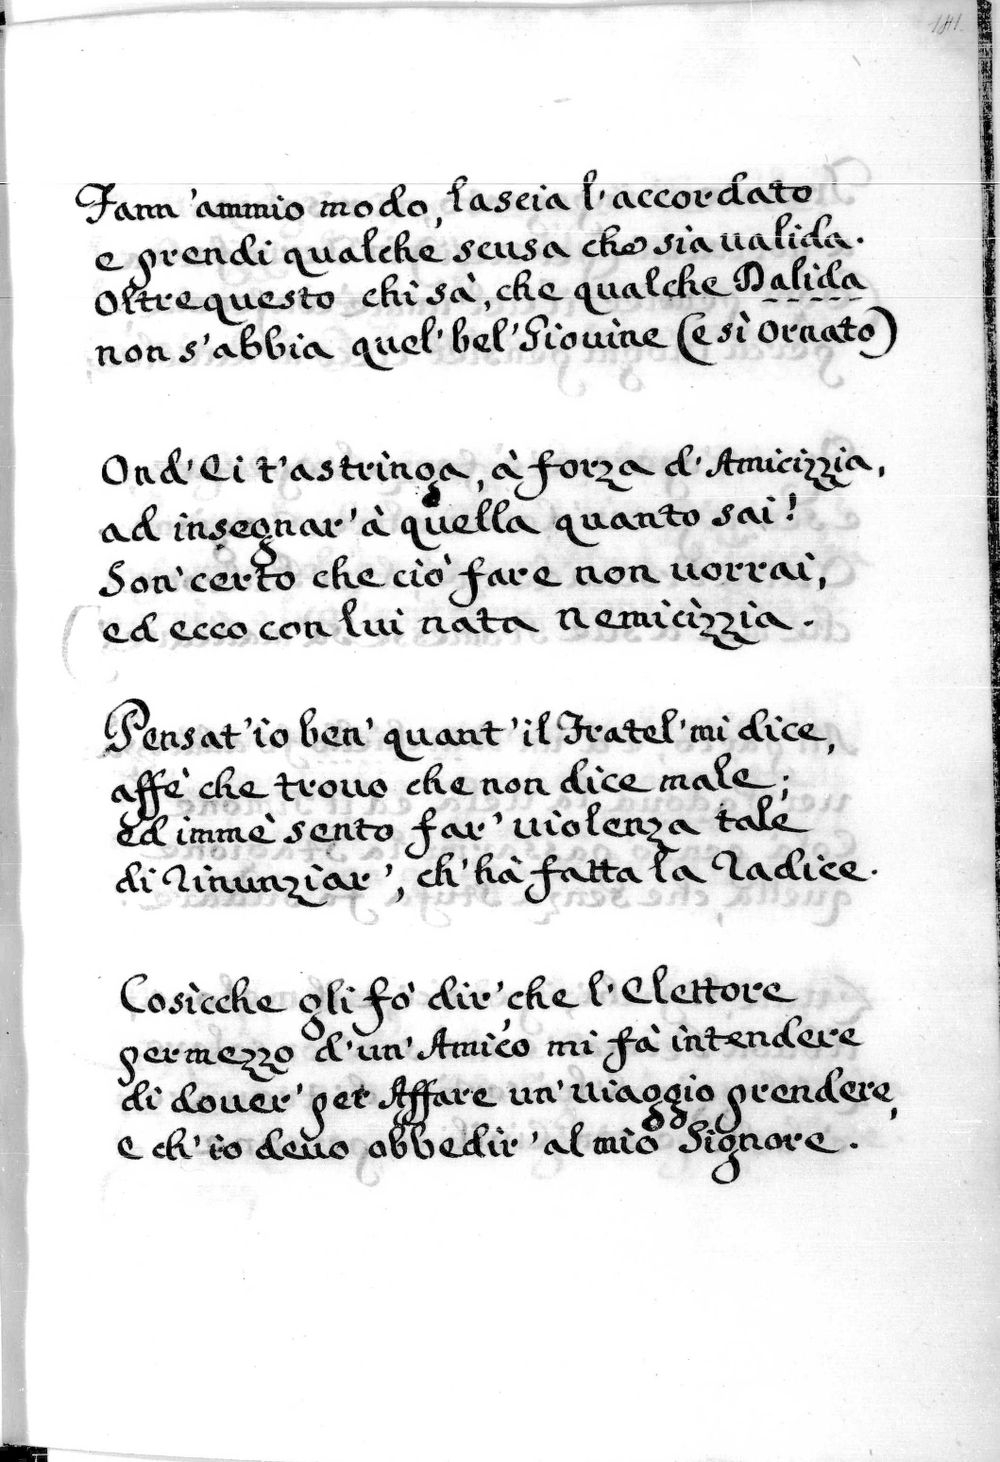 181
Fann' ammio modo, lascia l'accordato
e prendi qualche scusa che sia ualida.
Oltre questo chi sà, che qualche Dalida
non s'abbia quel' bel' Giouine (e sì ornato)
Ond' Ei t'astringa, à forza d'Amicizzia,
ad insegnar' à quella quanto sai!
Son' certo che ciò fare non uorrai,
ed ecco con lui nata nemicizzia.
Pensat' io ben' quant' il Fratel' mi dice,
affè che trouo che non dice male;
ed immè sento far' uiolenza tale
di rinunziar', ch' hà fatta la radice.
Cosìcche gli fò dir', che l'Elettore
per mezzo d'un' Amico mi fà intendere
di douer' per Affare un' uiaggio prendere,
e ch' io deuo obbedir' al mio Signore.